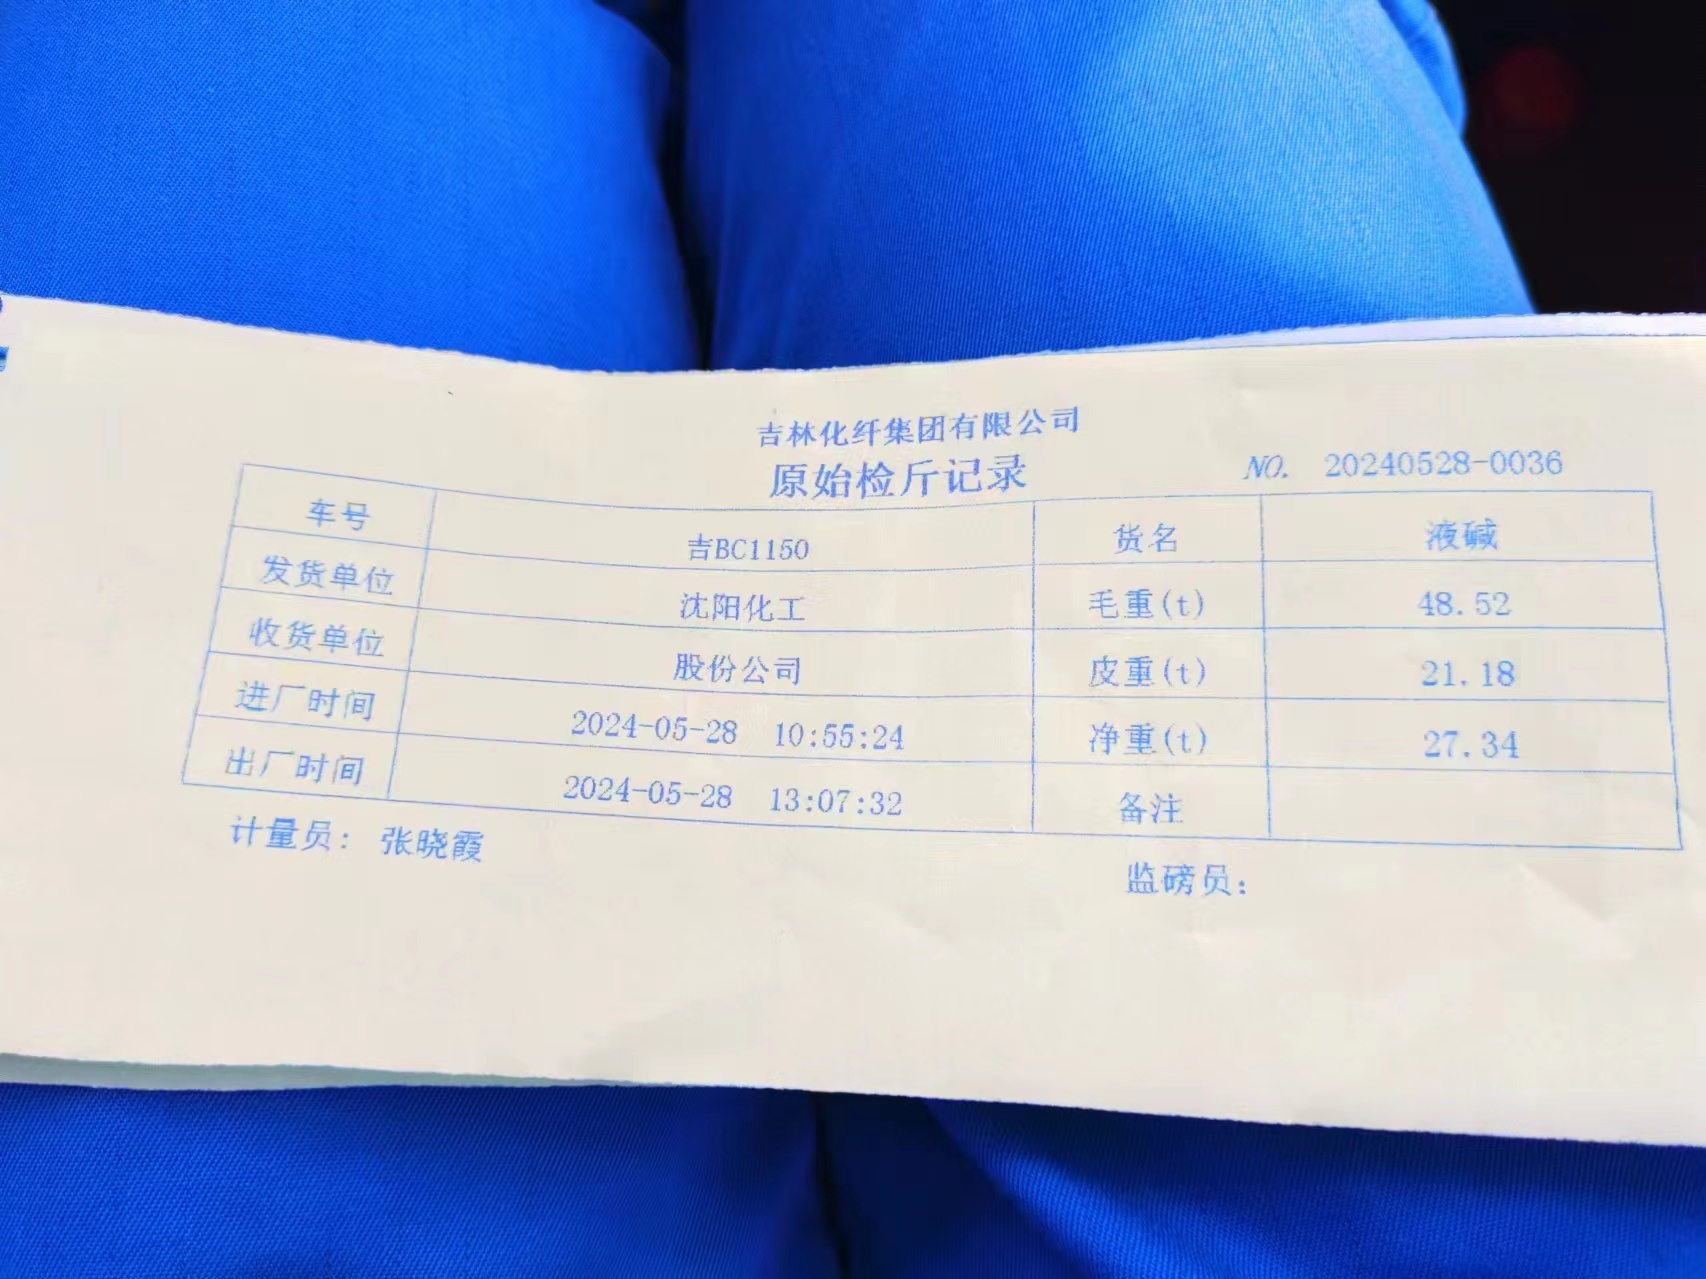 吉林化纤集团有限公司
原始检斤记录
NO. 20240528-0036
车号 吉BC1150 货名 液碱
发货单位 沈阳化工 毛重(t) 48.52
收货单位 股份公司 皮重(t) 21.18
进厂时间 2024-05-28 10:55:24 净重(t) 27.34
出厂时间 2024-05-28 13:07:32 备注
计量员: 张晓霞 监磅员: